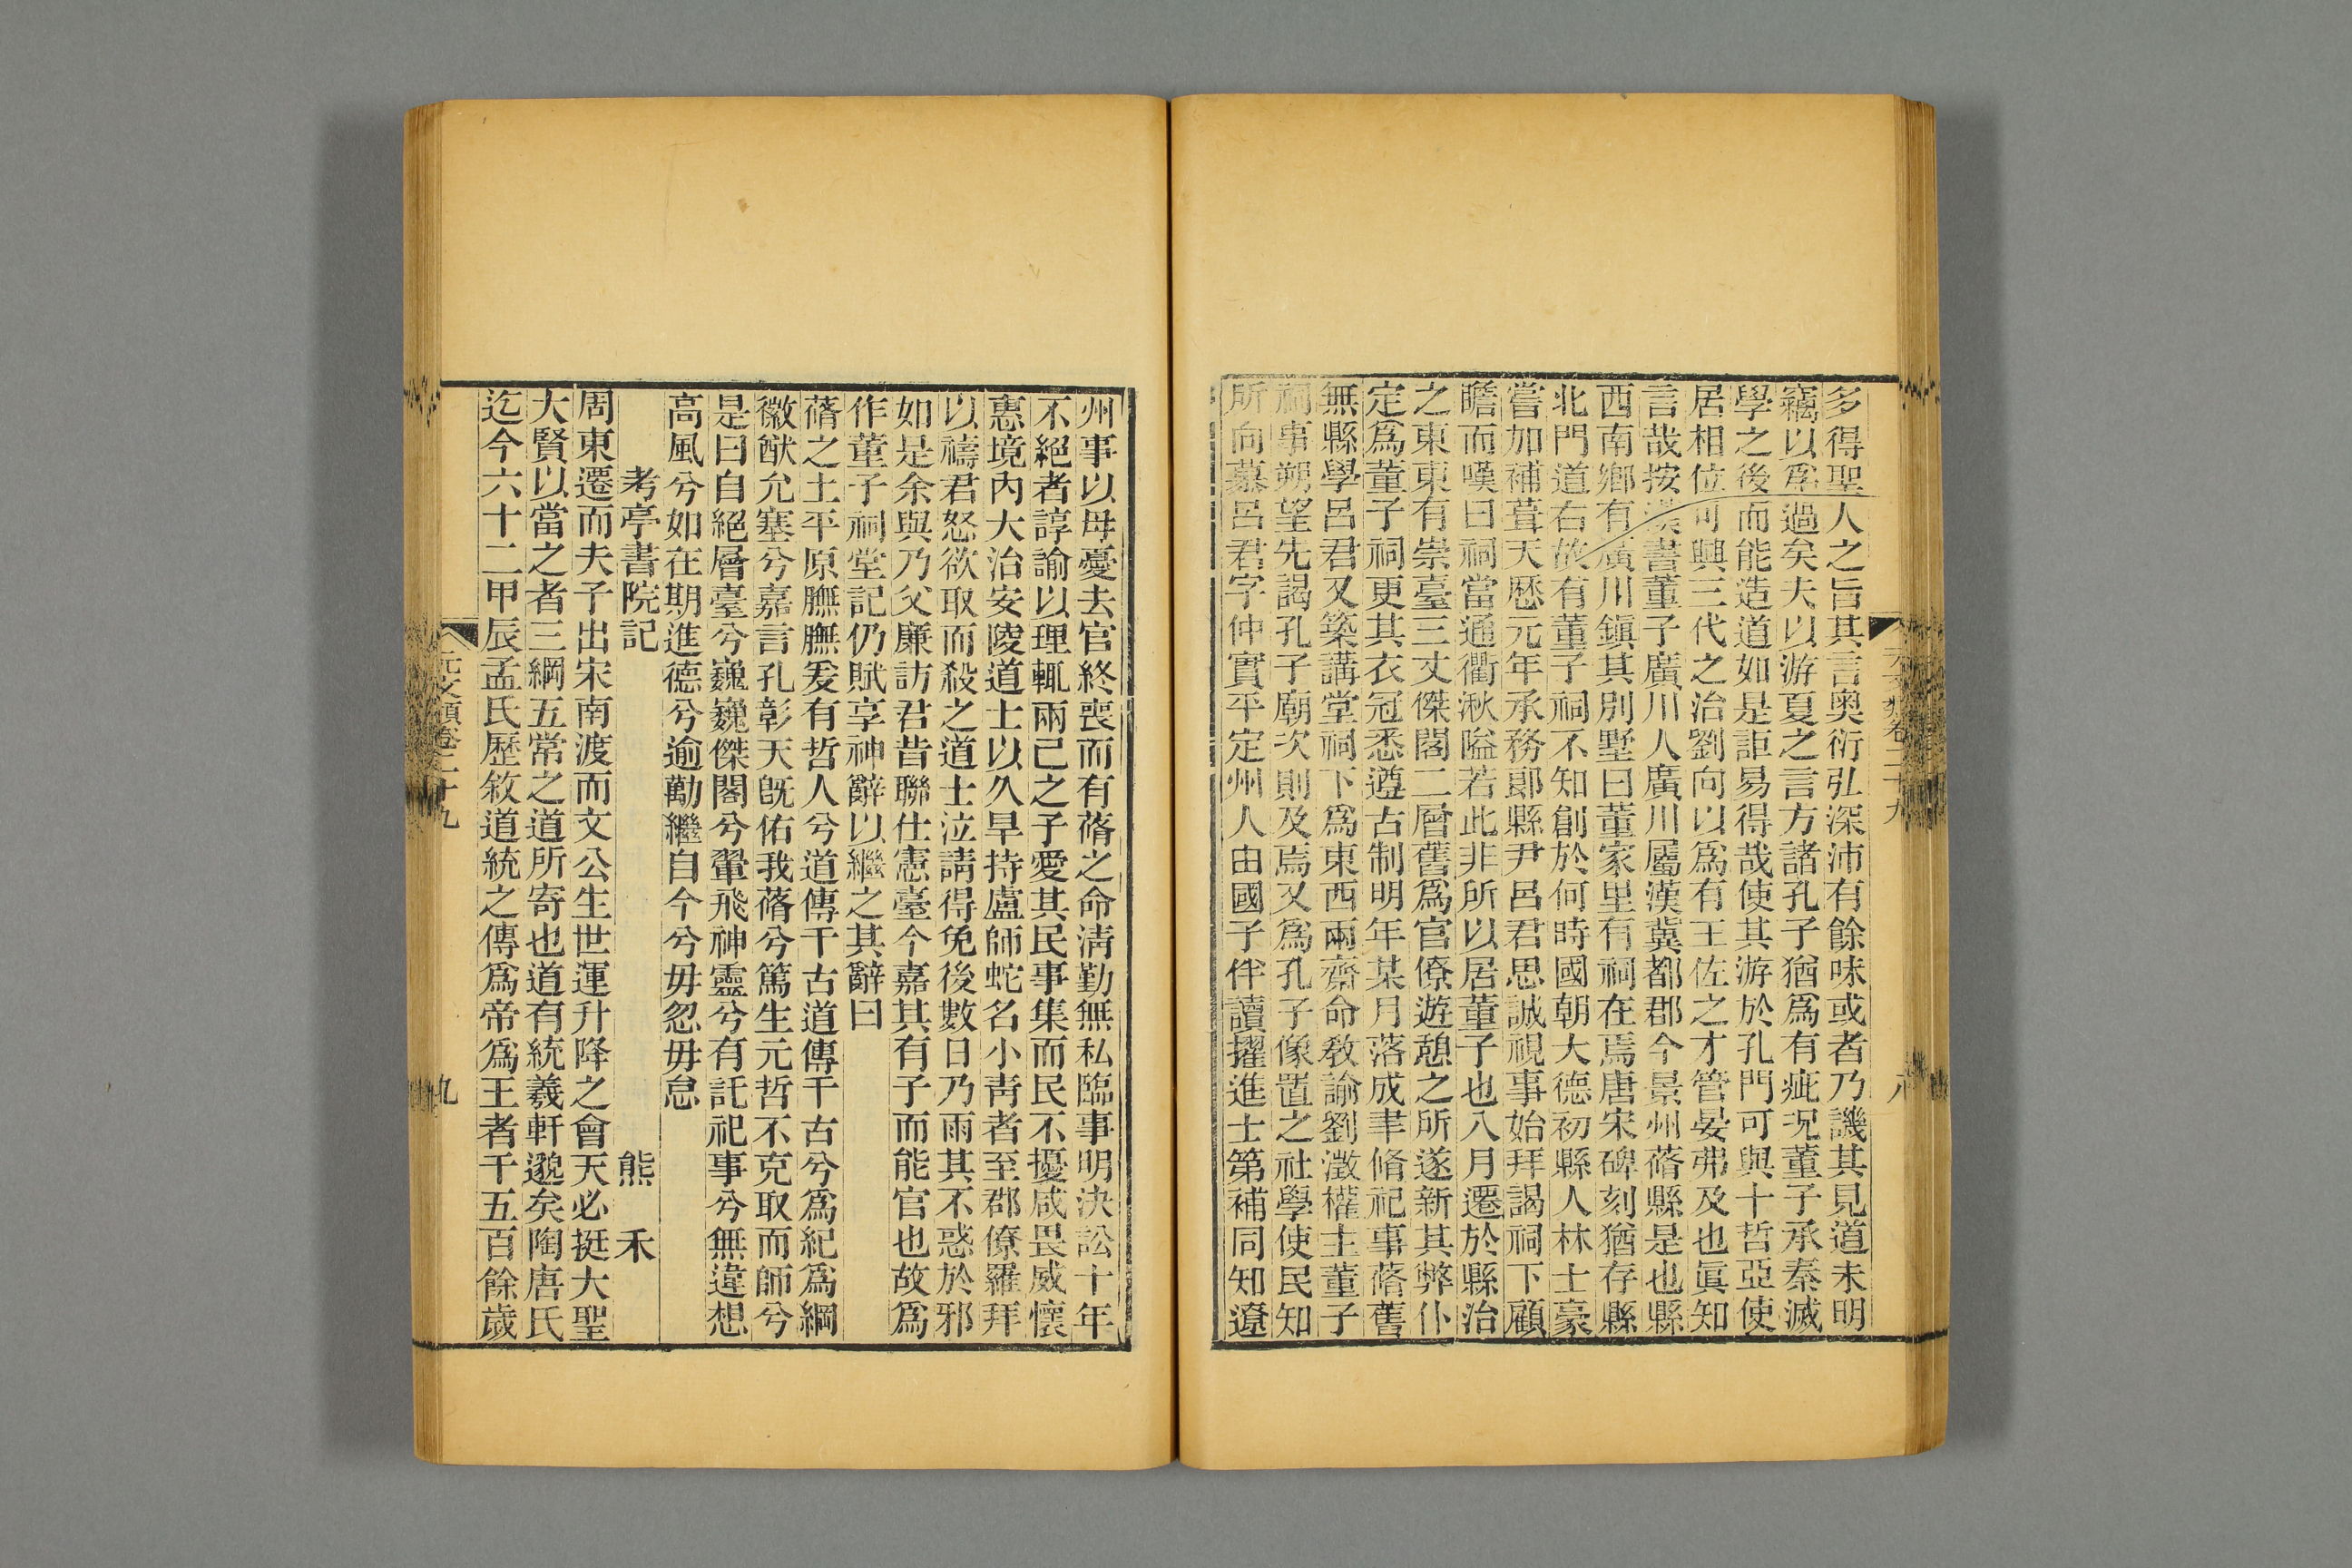 多得聖人之旨其言奥衍弘深沛有餘味或者乃譏其見道未明
竊以爲過矣夫以游夏之言方諸孔子猶爲有疵況董子承秦滅
學之後而能造道如是詎易得哉使其游於孔門可與十哲亞使
居相位可興三代之治劉向以爲有王佐之才管晏弗及也眞知
言哉按漢書董子廣川人廣川屬漢冀都郡今景州蓨縣是也縣
西南鄉有廣川鎮其別墅曰董家里有祠在焉唐宋碑刻猶存縣
北門道右故有董子祠不知創於何時國朝大德初縣人林士豪
嘗加補葺天曆元年承務郎縣尹呂君思誠視事始拜謁祠下顧
瞻而嘆曰祠當通衢湫隘若此非所以居董子也八月遷於縣治
之東東有崇臺三丈傑閣二層舊爲官僚遊憩之所遂新其弊仆
定爲董子祠更其衣冠悉遵古制明年某月落成聿脩祀事蓨舊
無縣學呂君又築講堂祠下爲東西兩齋命教諭劉澂權主董子
祠事朔望先謁孔子廟次則及焉又爲孔子像置之社學使民知
所向慕呂君字仲實平定州人由國子伴讀擢進士第補同知遼
元文類卷二十九
八
州事以毋憂去官終喪而有蓨之命淸勤無私臨事明決訟十年
不絕者諄諭以理輒兩已之子愛其民事集而民不擾咸畏威懷
惠境內大治安陵道士以久旱持盧師蛇名小靑者至郡僚羅拜
以禱君怒欲取而殺之道士泣請得免後數日乃雨其不惑於邪
如是余與乃父廉訪君昔聯仕憲臺今嘉其有子而能官也故爲
作董子祠堂記仍賦享神辭以繼之其辭曰
蓨之土平原膴膴爰有哲人兮道傳千古道傳千古兮爲紀爲綱
徽猷允塞兮嘉言孔彰天旣佑我蓨兮篤生元哲不克取而師兮
是曰自絕層臺兮巍巍傑閣兮翬飛神靈兮有託祀事兮無違想
高風兮如在期進德兮逾勤繼自今兮毋忽毋怠
考亭書院記　熊禾
周東遷而夫子出宋南渡而文公生世運升降之會天必挺大聖
大賢以當之者三綱五常之道所寄也道有統羲軒邈矣陶唐氏
迄今六十二甲辰孟氏歷敘道統之傳爲帝爲王者千五百餘歲
元文類卷二十九
九